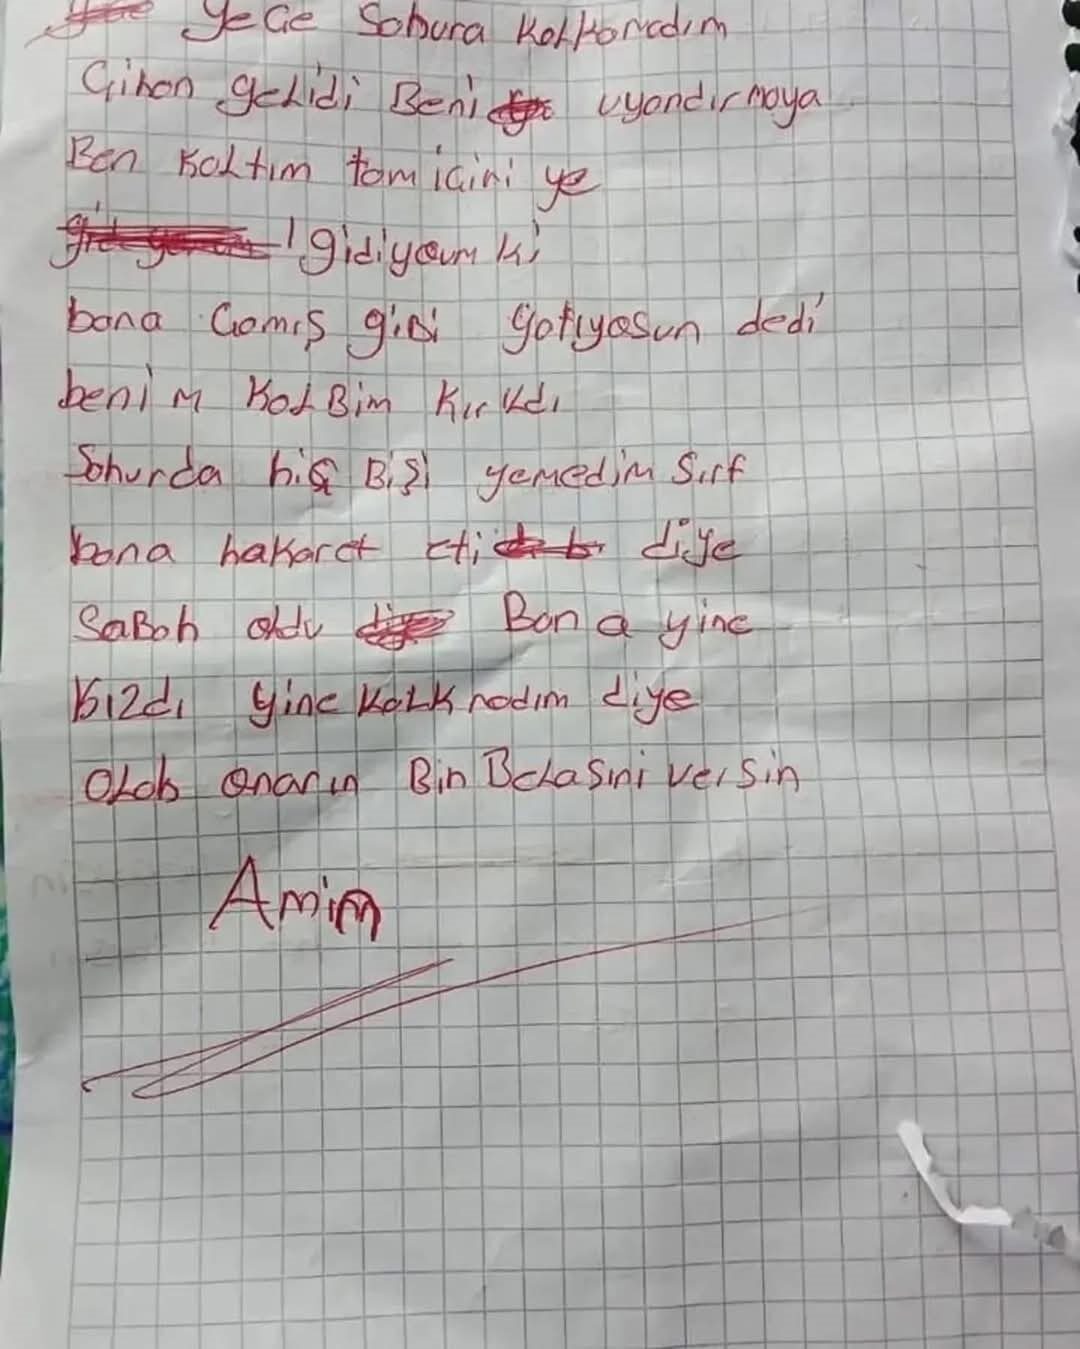 yeCe Sohura Kalkamadım
Cihan geLidi Beni uyandırmaya
Ben KaLtım tam içini ye
gidiyoum ki
bana Camış gibi yatıyosun dedi
benim KaLBim Kırıldı
Sohurda hiç Bişi yemedim Sırf
bana hakaret eti diye
SaBah oldu Bana yine
Kızdı yine KaLk madım diye
OLah onarın Bin BeLasını versin
Amim